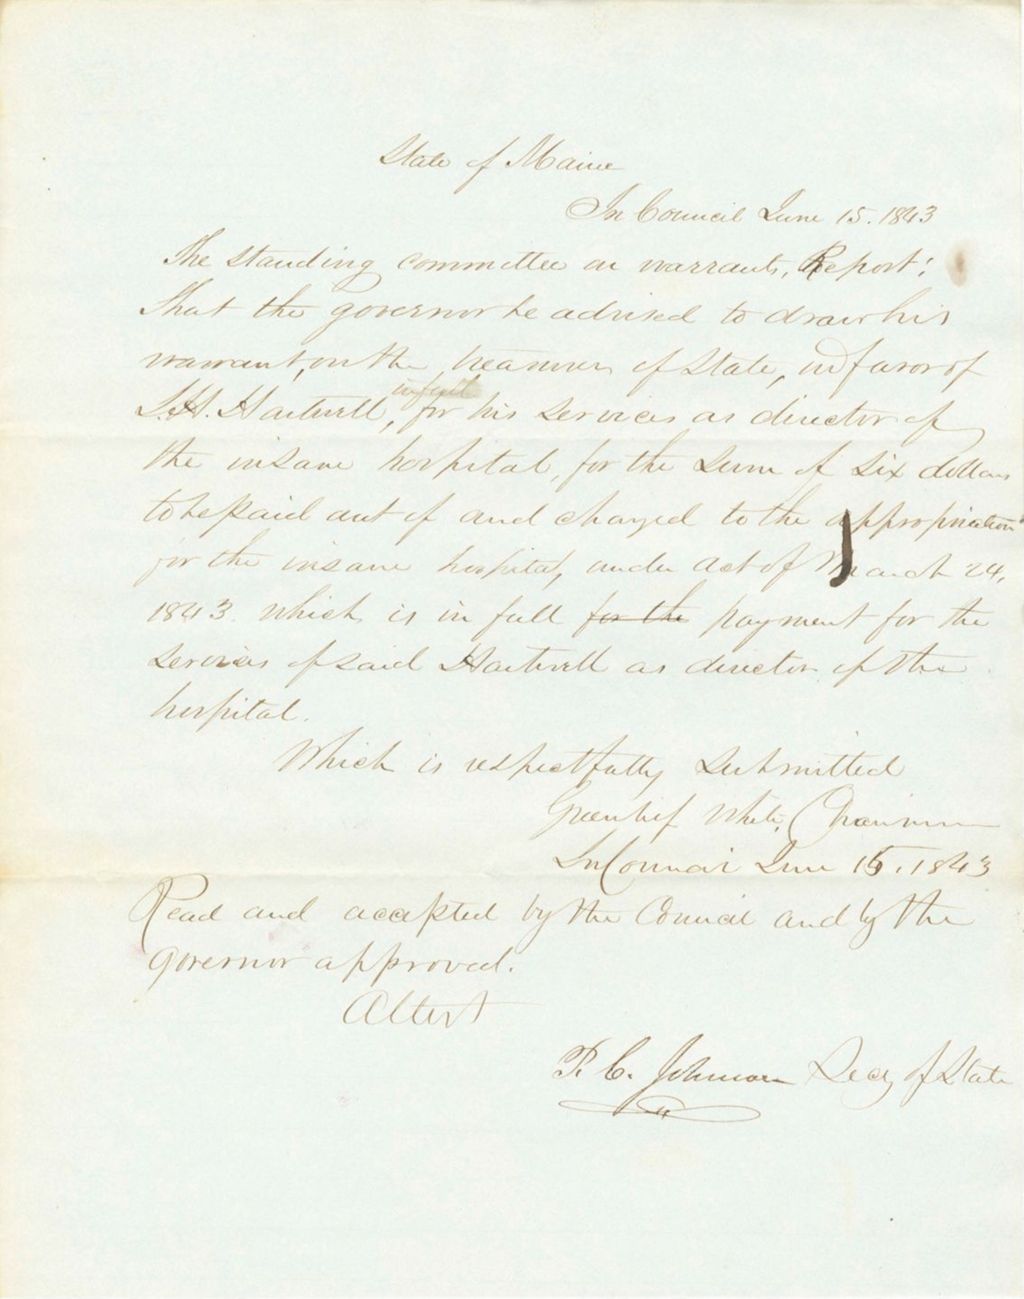 State of Maine
In Council June 15. 1843
The standing committee on warrants, Report;
That the governor be advised to draw his
warrant, on the treasurer of State, in favor of
in full
Hartwell, for his services as director of
the insane hospital, for the sum of six dollars
to be paid out of and charged to the appropriation
for the insane hospital, under act of March 24,
1843. which is in full for the payment for the
services of said Hartwell as director of the
hospital.
Which is respectfully submitted
Greenlief White, Chairman
In Council June 15, 1843
Read and accepted by the Council and by the
governor approved.
Attest
P. C. Johnson Secy of State